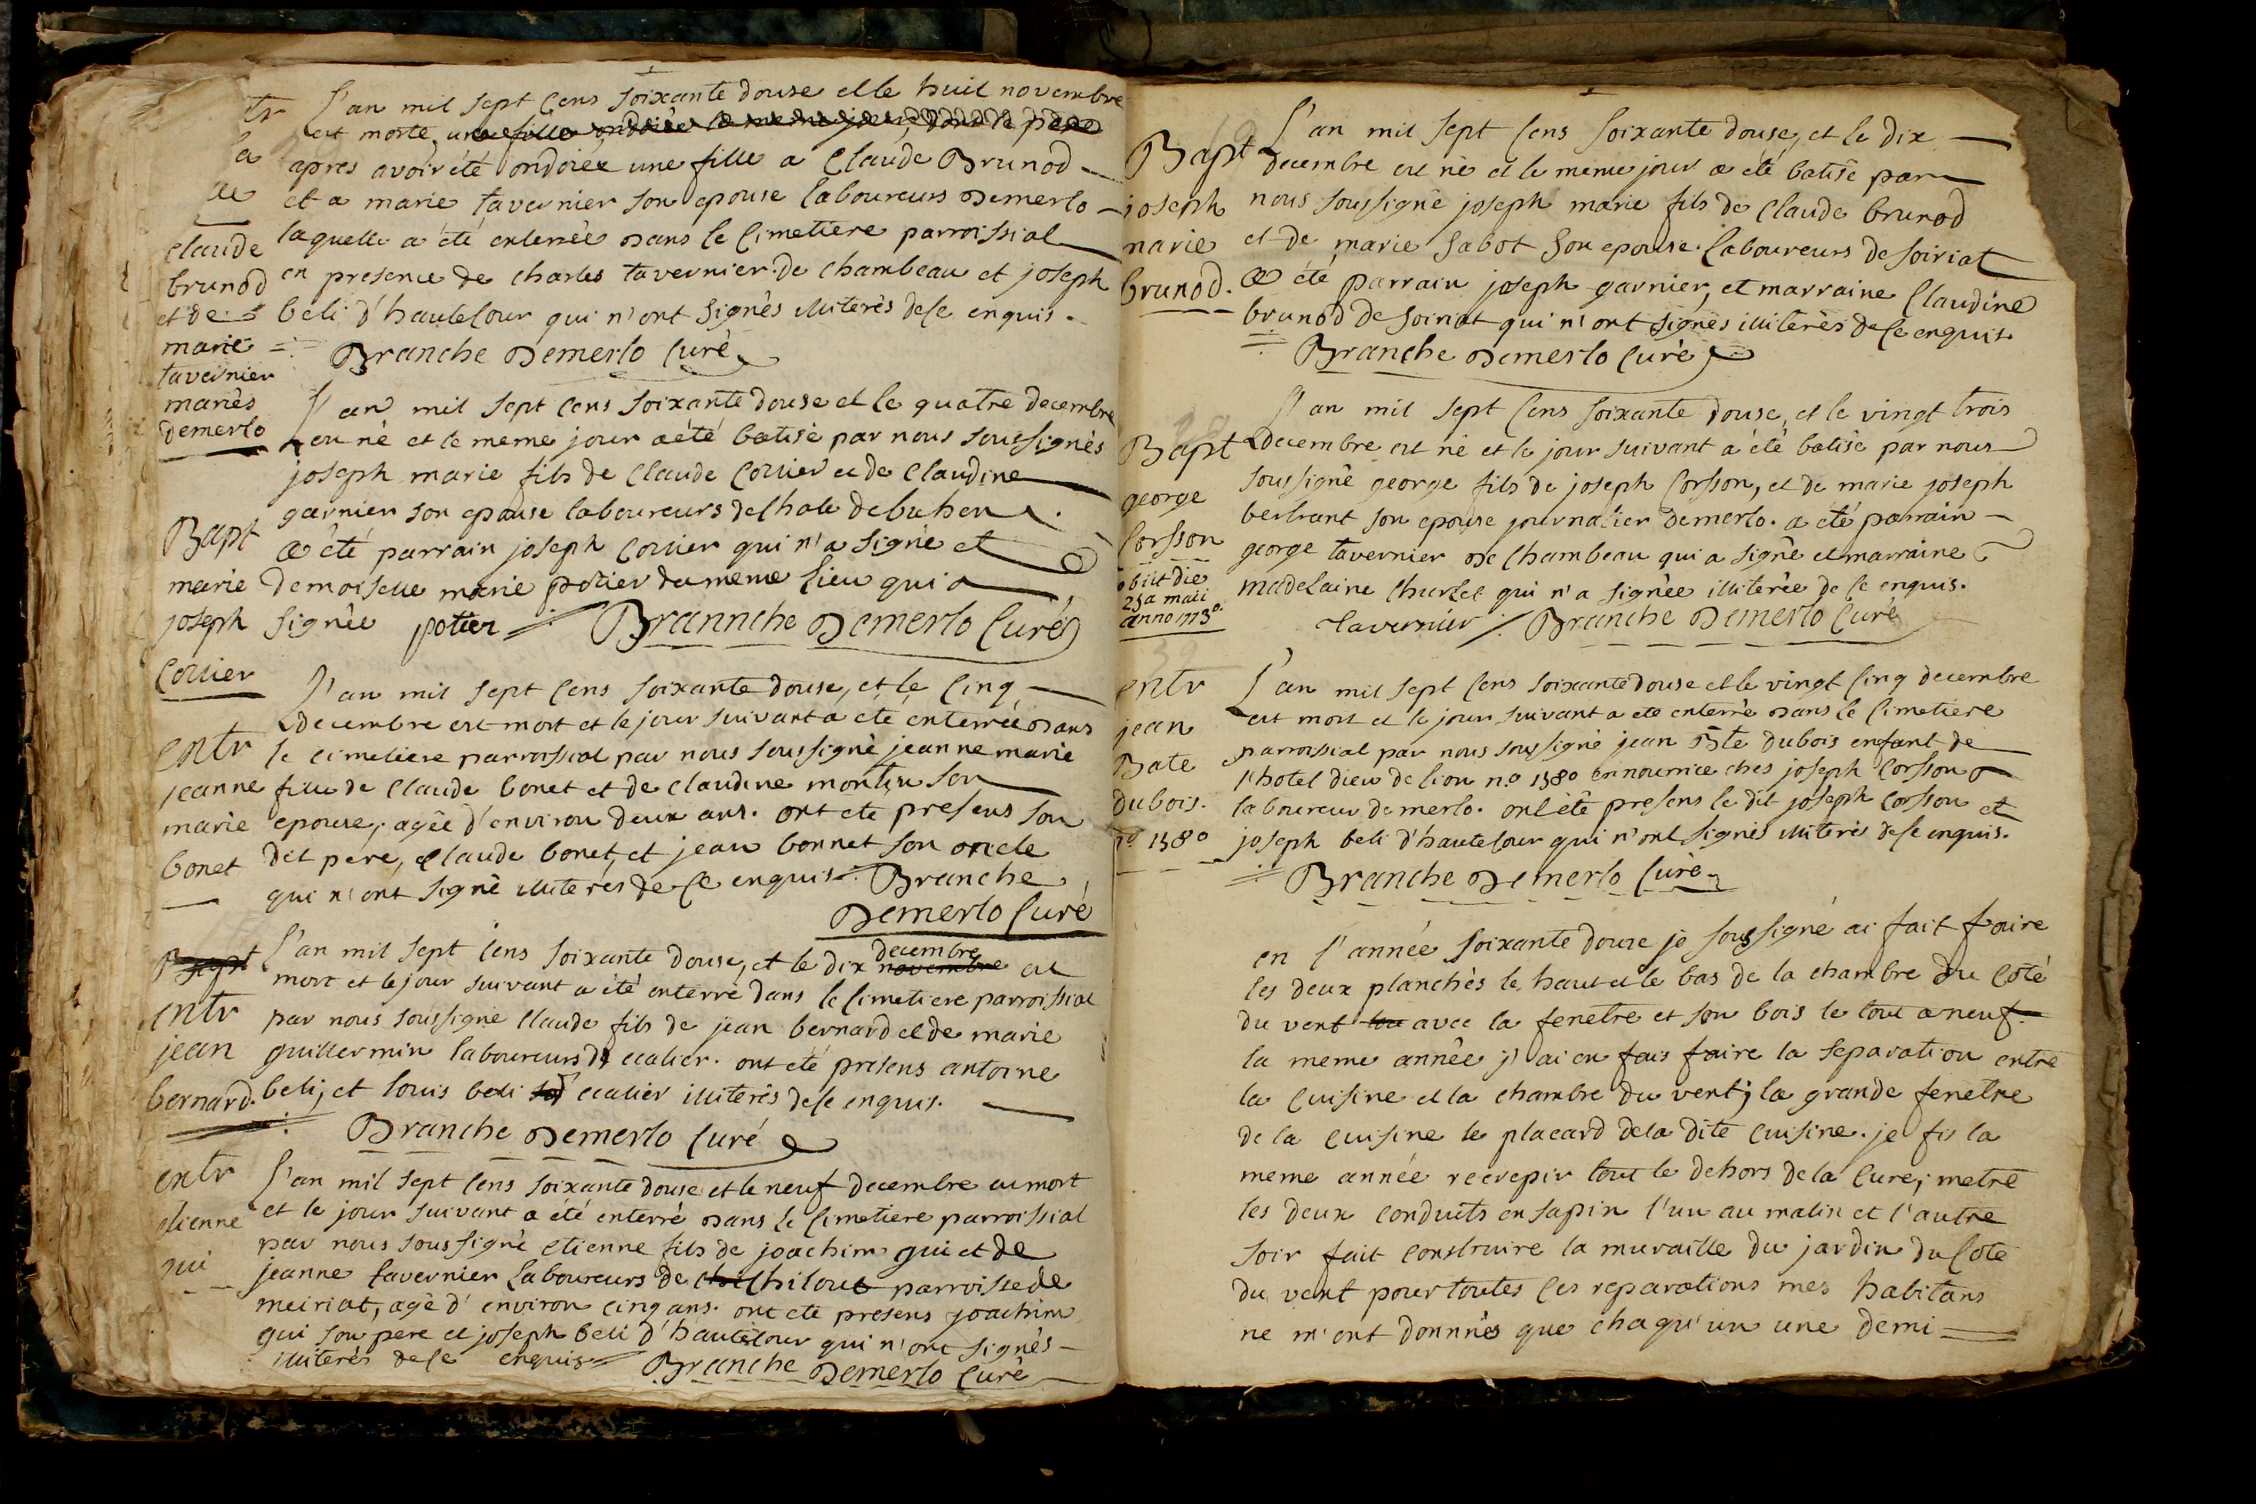 tr
la
de
claude
brunod
et de
marie
tavernier
mariès
demerlo
L'an mil sept Cens soixante douse et le huit novembre
est morte, une fille ondoièe le meme jour, dont le pere
apres avoir été ondoièe une fille a Claude Brunod
et a marie tavernier son epouse laboureurs Demerlo
laquelle a été enterrèe dans le Cimetiere parroissial
en presence de charles tavernier de chambeau et joseph
beli d'hautecour qui n'ont signès illiterès de ce enquis.
Branche Demerlo Curè
Bapt
marie
joseph
Collier
L'an mil sept Cens soixante douse et le quatre decembre
est nè et le meme jour a été batisè par nous soussignès
joseph marie fils de Claude Collier et de Claudine
garnier son epouse laboureurs de
a été parrain joseph Collier qui n'a signè et
demoiselle marie potier du meme lieu qui a
signèe potier Brannche Demerlo Curé
entr
jeanne
marie
bonet
L'an mil sept Cens soixante douse, et le Cinq
decembre est mort et le jour suivant a été enterrèe dans
le cimetiere parroissial par nous soussignè jeanne marie
fille de Claude bonet et de claudine son
epouse, agèe d'environ deux ans. ont ete presens son
dit pere, Claude bonet, et jean bonnet son oncle
qui n'ont signè illiterès de Ce enquis. Branche
Demerlo Curé
Bapt
entr
jean
bernard.
L'an mil sept Cens soixante douse, et le dix novembre decembre est
mort et le jour suivant a été enterrè dans le Cimetiere parroissial
par nous soussignè Claude fils de jean bernard et de marie
guillermin laboureurs d'ecalier. ont eté presens antoine
beli, et louis beli d'ecalier illiterès de ce enquis.
Branche Demerlo Curé
entr
etienne
gui
L'an mil sept Cens soixante douse et le neuf decembre est mort
et le jour suivant a été enterrè dans le Cimetiere parroissial
par nous soussignè etienne fils de joachim gui et de
jeanne tavernier laboureurs de Chiloup parroisse de
meiriat, agè d'environ cinq ans. ont ete presens joachim
gui son pere et joseph beli d'hautecour qui n'ont signès
illiterès de ce enquis Branche Demerlo Curè
Bapt
joseph
marie
brunod.
L'an mil sept Cens soixante douse, et le dix
decembre est nè et le meme jour a été batisè par
nous soussignè joseph marie fils de Claude brunod
et de marie Sabot son epouse. laboureurs de soiriat
a été parrain joseph garnier, et marraine Claudine
brunod de soiriat qui n'ont signès illiterès de ce enquis
Branche Demerlo Curè
Bapt
george
Corsson
obiit die
25a maii
anno 1773o
L'an mil sept Cens soixante douse, et le vingt trois
decembre est nè et le jour suivant a été batisè par nous
soussignè george fils de joseph Corsson, et de marie joseph
bertrant son epouse journalier demerlo. a été parrain
george tavernier de chambeau qui a signè et marraine
madelaine Charlet qui n'a signèe illiterèe de ce enquis.
Tavernier Branche Demerlo Curé
entr
jean
Bate
dubois.
no 1580
L'an mil sept Cens soixante douse et le vingt Cinq decembre
est mort et le jour suivant a ete enterrè dans le Cimetiere
parroissial par nous soussignè jean Bte dubois enfant de
l'hotel dieu de lion no 1580 en nourrice ches joseph Corsson
laboureur demerlo. ont été presens le dit joseph Corsson et
joseph beli d'hautecour qui n'ont signès illiterès de ce enquis.
Branche Demerlo Curè
en l'année soixante douze je soussigné ai fait faire
les deux planchès le haut et le bas de la chambre du Coté
du vent tou avec la fenetre et son bois le tout a neuf.
la meme annèe j'ai en fais faire la separation entre
la Cuisine et la chambre du vent; la grande fenetre
de la Cuisine le placard de la dite Cuisine. je fis la
meme année recrepir tout le dehors de la Cure, metre
les deux conduits en sapin l'un au matin et l'autre
soir fait construire la muraille du jardin du Coté
du vent pour toutes Ces reparations mes habitans
ne m'ont donnnès que chaqu'un une demi